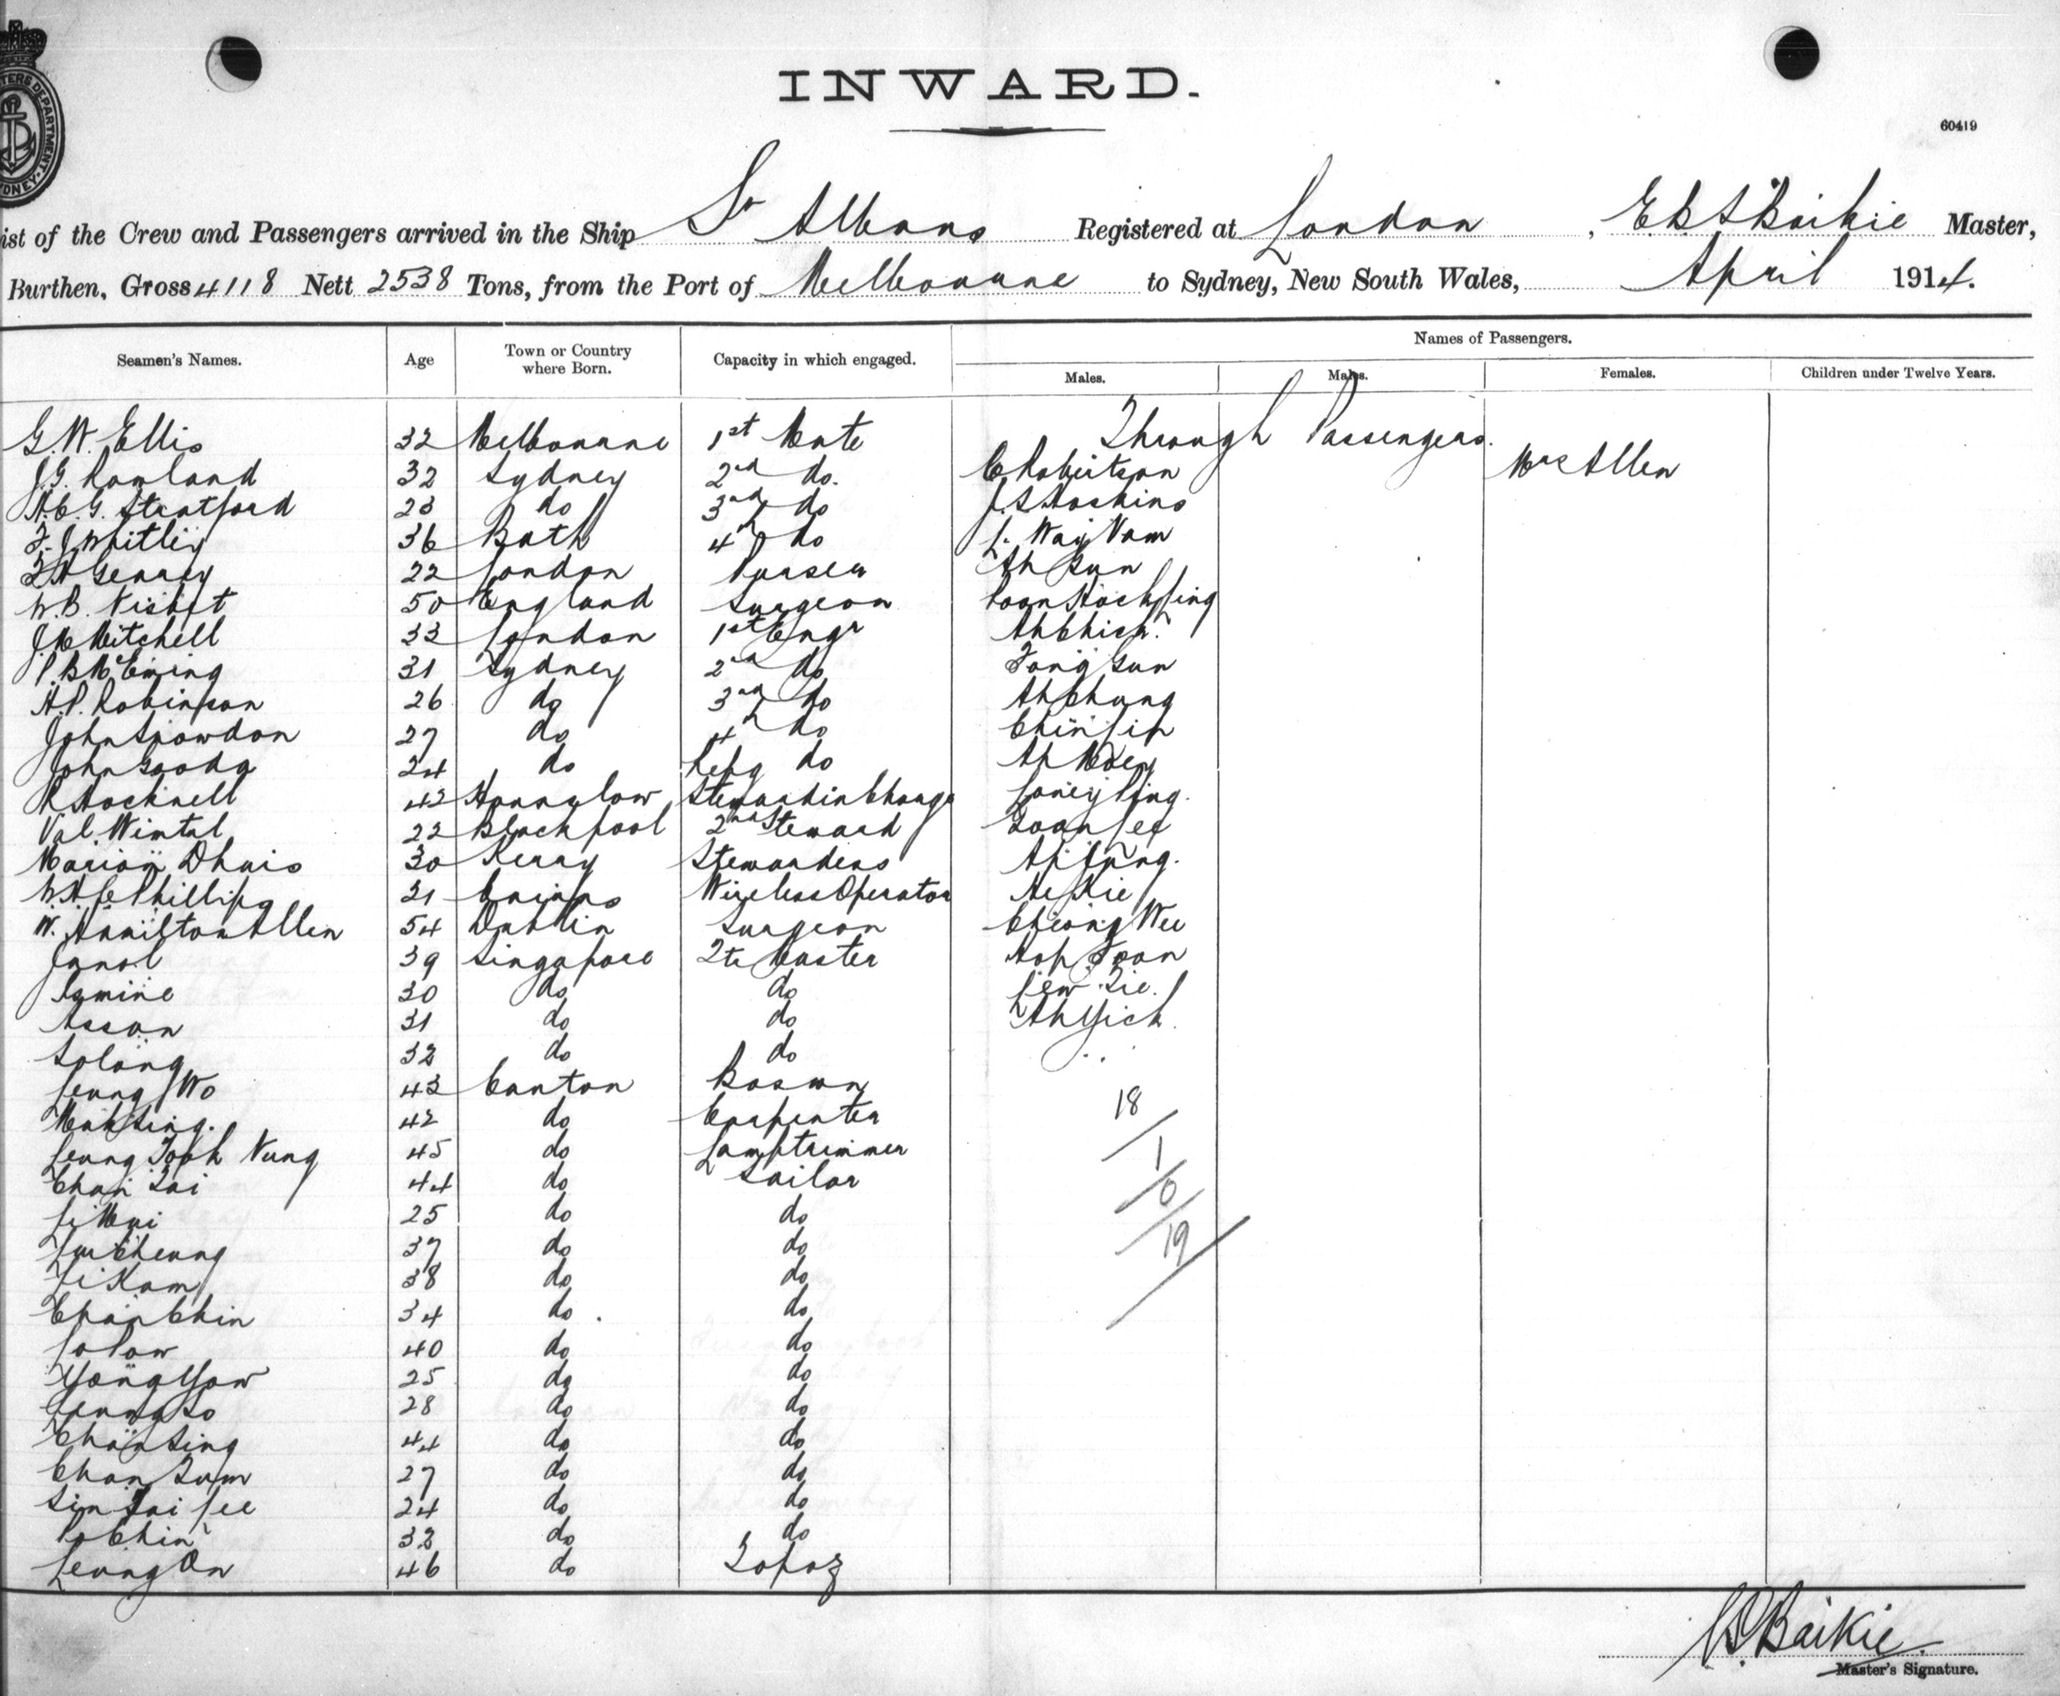 TERS DEPARTMENT.
YDNEY.
INWARD.
60419
ist of the Crew and Passengers arrived in the Ship St Albans Registered at London, E. B. S. Baikie Master,
Burthen, Gross 4118 Nett 2538 Tons, from the Port of Melbourne to Sydney, New South Wales, April 1914.
Seamen's Names. Age Town or Country where Born. Capacity in which engaged. Names of Passengers.
Males. Males. Females. Children under Twelve Years.
Through Passengers.
G. W. Ellis 32 Melbourne 1st Mate
J. G. Rowland 32 Sydney 2nd do. C Robertson Mrs Allen
H. C. G. Stratford 23 do 3rd do J. S Hoskins
F. J Whitley 36 Bath 4th do L. Way Nam
22 London Purser Ah Sun
W. B. Nisbet 50 England Surgeon
J. M Mitchell 33 London 1st Engr Ah Chick.
P. B. McEwing 31 Sydney 2nd do Fong Sun
H. P. Robinson 26 do 3rd do Ah Chung
John Snowdon 27 do 4th do
John 24 do Refg do Ah Moey
R Hocknell 43 Hounslow Steward in Charge
Val. Wintal 22 Blackpool 2nd Steward
Marion Dhuis 30 Kerry Stewardess Ah Fung.
W. H. C Phillips 21 Cairns Wireless Operator Ah Kie
W. Hamilton Allen 54 Dublin Surgeon Cheong Wee
39 Singapore 2te Master Hop Toon
Jamine 30 do do Lew Tie.
Assan 31 do do Ah Yick.
Solong 32 do do
Leung Wo 43 Canton Boswn
Mak Sing. 42 do Carpenter
Leung Took Nung 45 do Lamptrimmer
Chan Tai 44 do Sailor
Li Mui 25 do do
Lui Cheung 37 do do
Li Kam 38 do do
Chan Chin 34 do do
Lo Pow 40 do do
Yong Yow 25 do do
Leung So 28 do do
Chan Sing 44 do do
Chan Tum 27 do do
Sin Tai Lee 24 do do
Lo Chin 32 do do
Leung On 46 do Topaz
18
1
0
19
E. B. Baikie
Master's Signature.